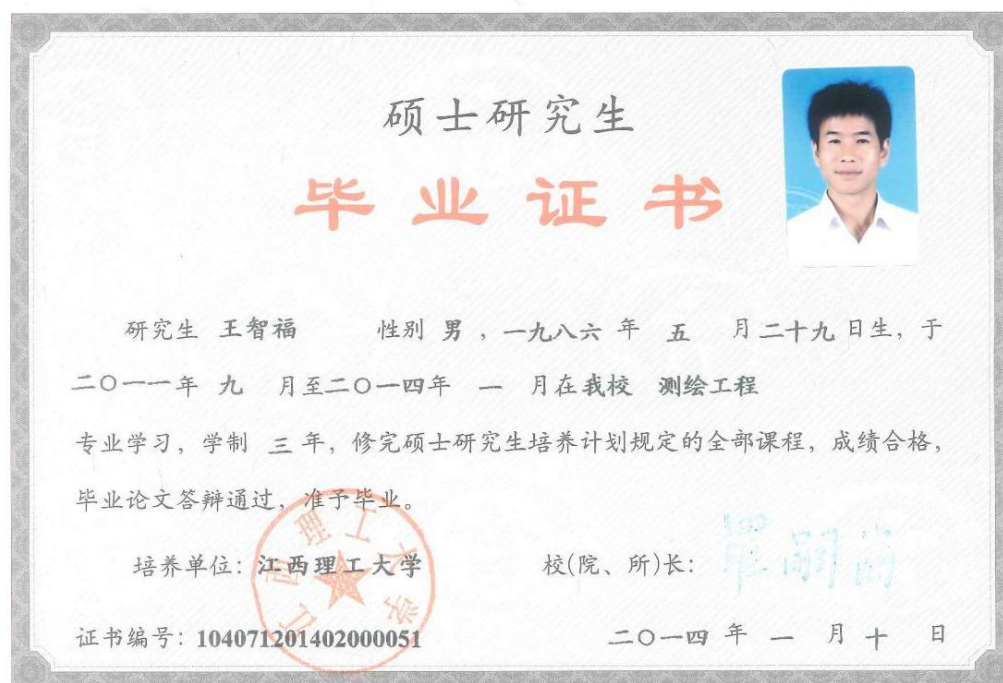 硕士研究生
毕业证书
研究生 王智福 性别 男 ，一九八六 年 五 月 二十九 日生，于
二〇一一年 九 月至二〇一四年 一 月在我校 测绘工程
专业学习，学制 三 年，修完硕士研究生培养计划规定的全部课程，成绩合格，
毕业论文答辩通过，准予毕业。
江西理工大学
培养单位：江西理工大学 校(院、所)长：罗嗣海
证书编号：104071201402000051 二〇一四 年 一 月 十 日